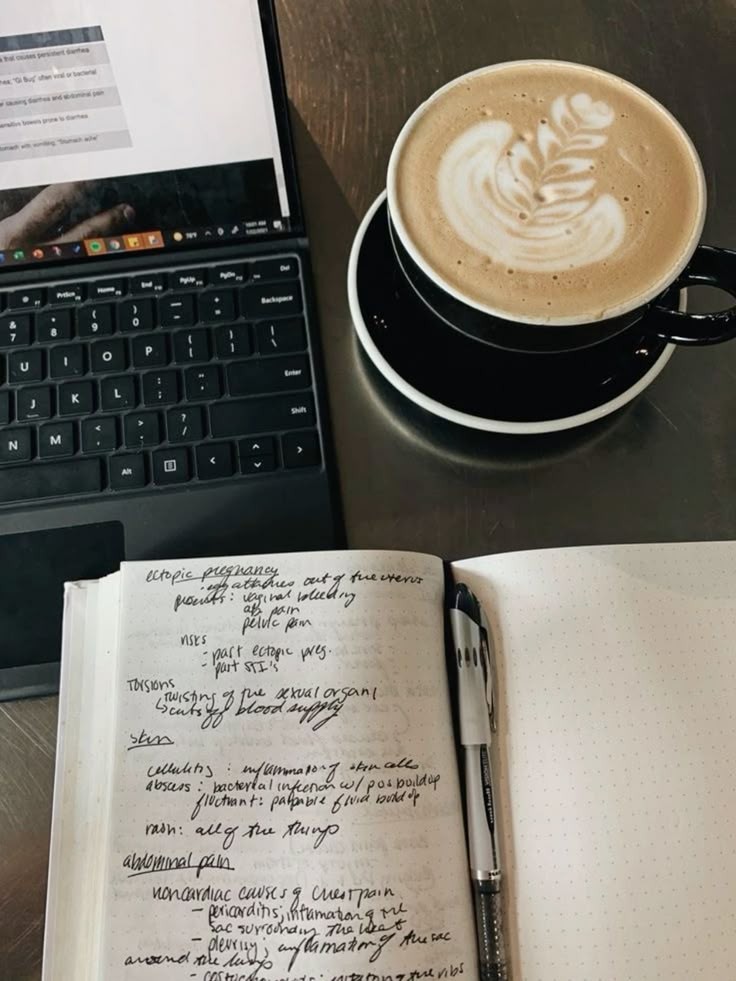 that causes persistent diarrhea
"GI Bug" often viral or bacterial
causing diarrhea and abdominal pain
sensitive bowels prone to diarrhea
stomach with vomiting, "Stomach ache"
78°F
10:01 AM
PrtScn
Home
End
PgUp
PgDn
Del
& 7
* 8
( 9
) 0
_ -
+ =
Backspace
U I O P { [ } ] | \
J K L : ; " ' Enter
N M < , > . ? / Shift
Alt
ectopic pregnancy
- egg attaches out of the uterus
presents: vaginal bleeding
ab pain
pelvic pain
risks
- past ectopic preg.
- past STI's
Torsions
↳ twisting of the sexual organ
↳ cuts off blood supply
skin
cellulitis : inflammation of skin cells
abscess : bacterial infection w/ pus buildup
fluctuant: palpable fluid build up
rash: all of the things
abdominal pain
noncardiac causes of chest pain
- pericarditis; inflamation of the
sac surrounding the heart
- pleurisy; inflamation of the sac
around the lungs
of the ribs